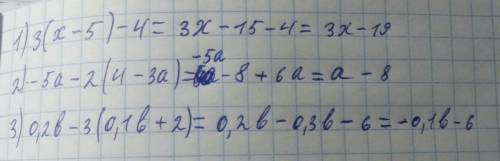 1) 3(x - 5) - 4 = 3x - 15 - 4 = 3x - 19
2) -5a - 2(4 - 3a) = -5a - 8 + 6a = a - 8
3) 0,2b - 3(0,1b + 2) = 0,2b - 0,3b - 6 = -0,1b - 6